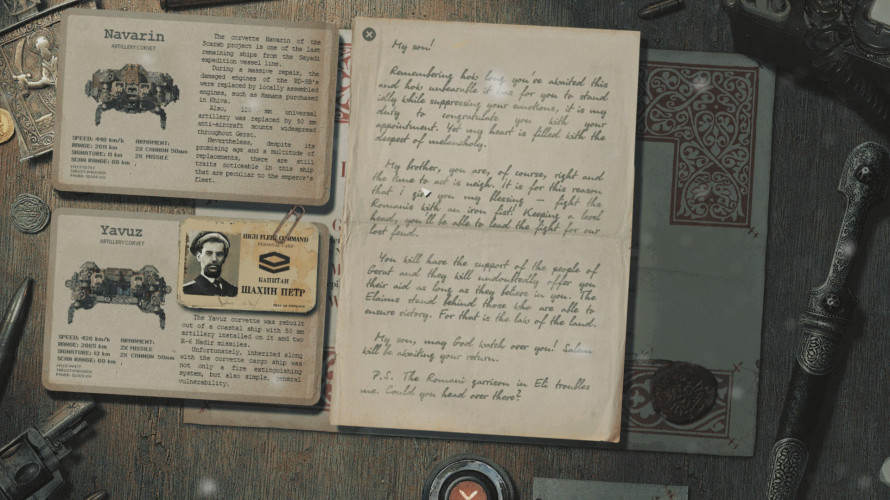 Navarin
ARTILLERY CORVET
The corvette Navarin of the
Scarab project is one of the last
remaining ships from the Sayadi
expedition vessel line.
During a massive repair, the
damaged engines of the
were replaced by locally assembled
engines, such as Hamans purchased
in Khiva.
Also, mm universal
artillery was replaced by 50 mm
anti-aircraft mounts widespread
throughout Gerat.
Nevertheless, despite its
promising age and a multitude of
replacements, there are still
traits noticeable in this ship
that are peculiar to the emperor's
fleet.
SPEED: km/h
RANGE: km
SIGNATURE: 11 km
SCAN RANGE: km
ARMAMENT:
2X CANNON 50mm
2X MISSILE
Yavuz
ARTILLERY CORVET
HIGH FLEET COMMAND
PERSONAL CARD
КАПИТАН
ШАХИН ПЕТР
SPEED: 426 km/h
RANGE: 2065 km
SIGNATURE: 12 km
SCAN RANGE: km
ARMAMENT:
2X MISSILE
2X CANNON 50mm
The Yavuz corvette was rebuilt
out of a coastal ship with 50 mm
artillery installed on it and two
R-6 Nadir missiles.
Unfortunately, inherited along
with the corvette cargo ship was
not only a fire extinguishing
system, but also simple, general
vulnerability.
My son!
Remembering how long you've awaited this
and how unbearable it was for you to stand
idly while suppressing your emotions, it is my
duty to congratulate you with your
appointment. Yet my heart is filled with the
deepest of melancholy.
My brother, you are, of course, right and
the time to act is neigh. It is for this reason
that i give you my blessing – fight the
Romanis with an iron fist! Keeping a level
heads, you'll be able to lead the fight for our
lost feud.
You will have the support of the people of
Gerat and they will undoubtedly offer you
their aid as long as they believe in you. The
Elaims stand behind those who are able to
ensure victory. For that is the law of the land.
My son, may God watch over you! Salem
will be awaiting your return.
P.S. The Romani garrison in Eli troubles
me. Could you head over there?